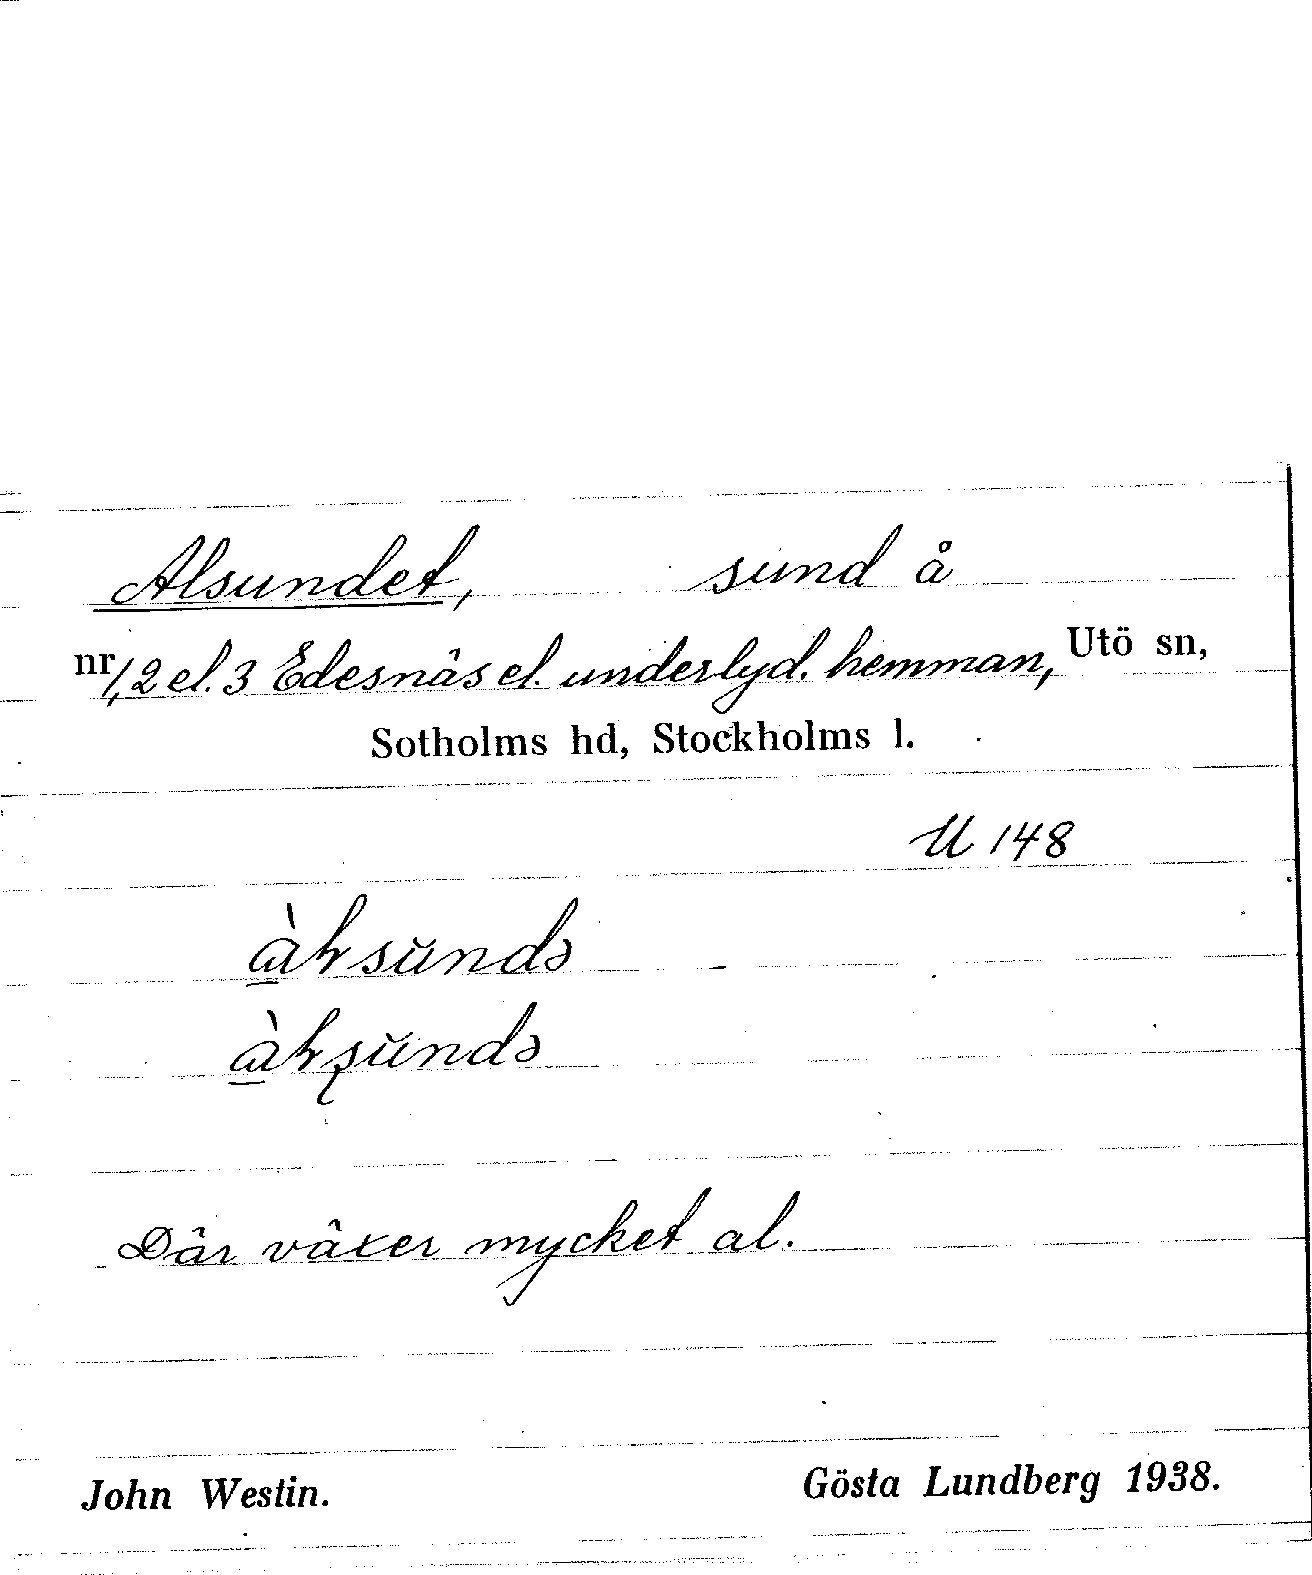 Alsundet, sund å
nr 1, 2 el. 3 Edesnäs el. underlyd. hemman, Utö sn,
Sotholms hd, Stockholms l.
U 148
Där växer mycket al.
John Westin. Gösta Lundberg 1938.